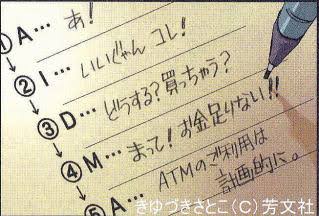 ①A… あ！
②I… いいじゃん コレ！
③D… どうする？買っちゃう？
④M… まって！お金足りない!!
⑤A… ATMのご利用は
計画的に。
きゆづきさとこ(C)芳文社